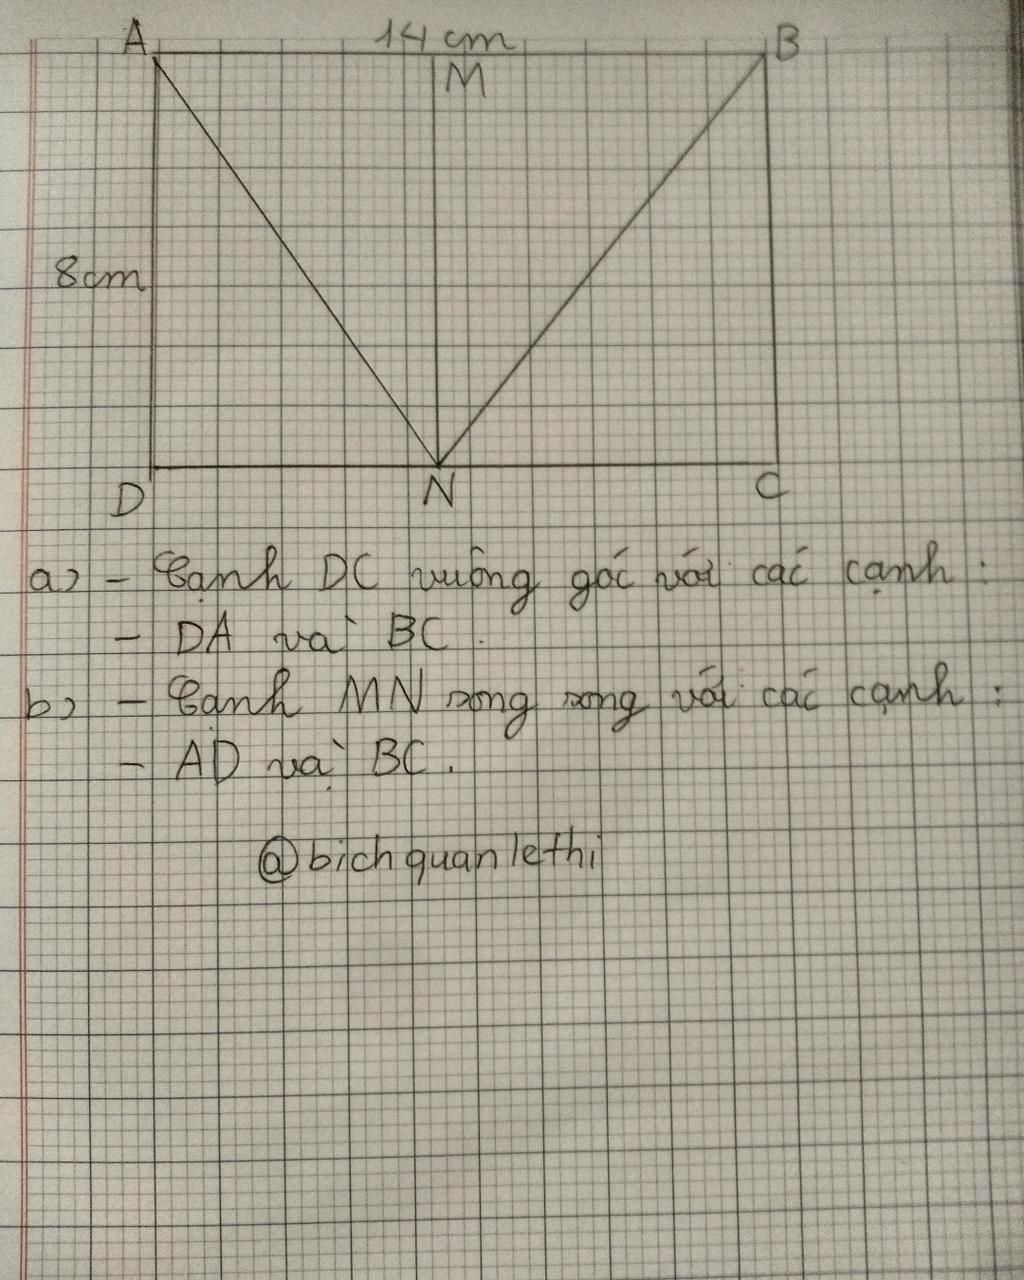 A 14 cm B
M
8cm
D N C
a) - Cạnh DC vuông góc với các cạnh :
- DA và BC.
b) - Cạnh MN song song với các cạnh :
- AD và BC.
@bichquanlethi